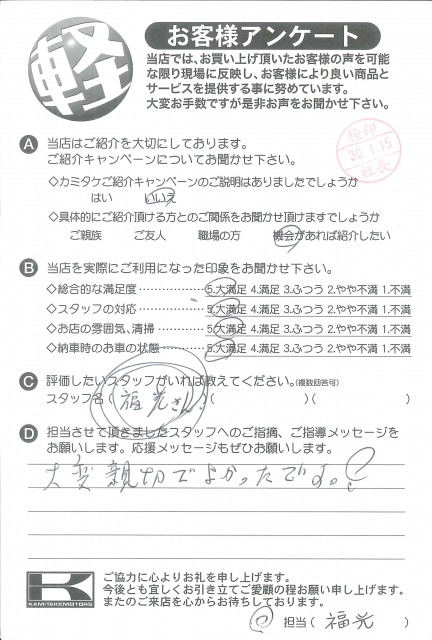 軽
お客様アンケート
当店では、お買い上げ頂いたお客様の声を可能
な限り現場に反映し、お客様により良い商品と
サービスを提供する事に努めています。
大変お手数ですが是非お声をお聞かせ下さい。
検印
30.1.15
社長
A 当店はご紹介を大切にしております。
ご紹介キャンペーンについてお聞かせ下さい。
◇カミタケご紹介キャンペーンのご説明はありましたでしょうか
はい いいえ
◇具体的にご紹介頂ける方とのご関係をお聞かせ頂けますでしょうか
ご親族 ご友人 職場の方 機会があれば紹介したい
B 当店を実際にご利用になった印象をお聞かせ下さい。
◇総合的な満足度……………… 5.大満足 4.満足 3.ふつう 2.やや不満 1.不満
◇スタッフの対応……………… 5.大満足 4.満足 3.ふつう 2.やや不満 1.不満
◇お店の雰囲気、清掃………… 5.大満足 4.満足 3.ふつう 2.やや不満 1.不満
◇納車時のお車の状態………… 5.大満足 4.満足 3.ふつう 2.やや不満 1.不満
C 評価したいスタッフがいれば教えてください。(複数回答可)
スタッフ名( 福光さん )( )( )
D 担当させて頂きましたスタッフへのご指摘、ご指導メッセージを
お願いします。応援メッセージもぜひお願いします。
大変親切でよかったです。
K
KAMITAKEMOTORS
ご協力に心よりお礼を申し上げます。
今後とも宜しくお引き立てご愛顧の程お願い申し上げます。
またのご来店を心からお待ちしております。
担当( 福光 )